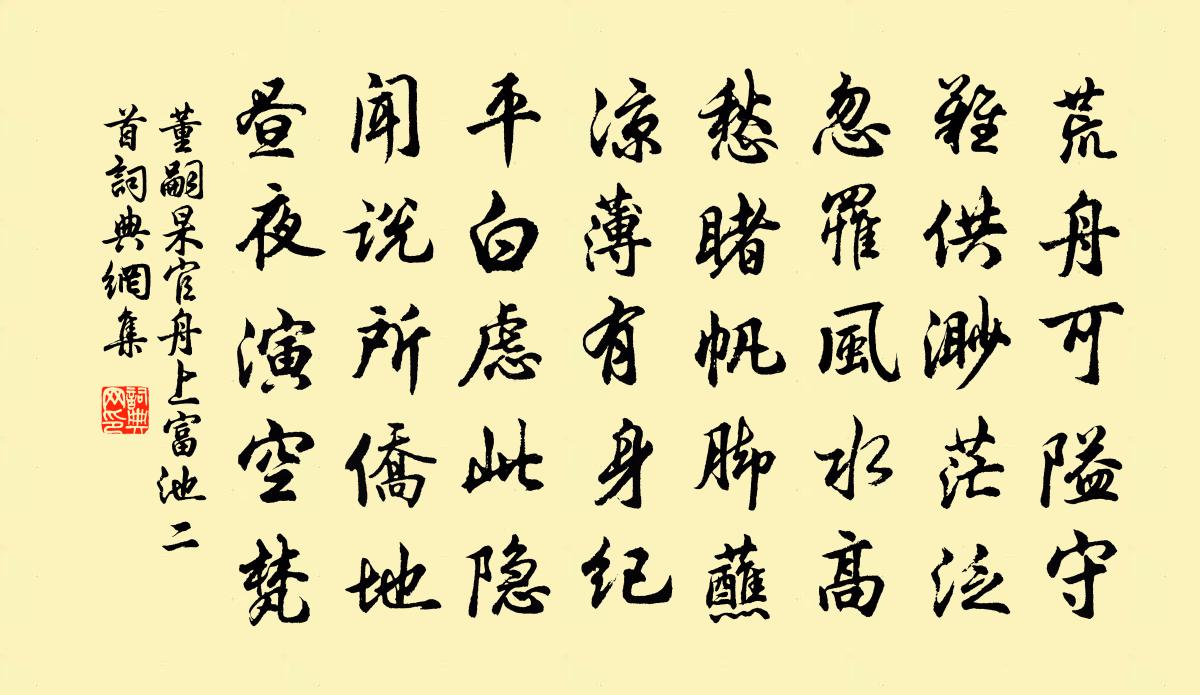 荒舟可隘守
難供渺茫泛
忽罹風水高
愁睹帆脚蘸
涼薄有身纪
平白虑此隐
闻说所僑地
昼夜演空梵
董嗣杲官舟上富池二
首詞典網集
詞典
网印